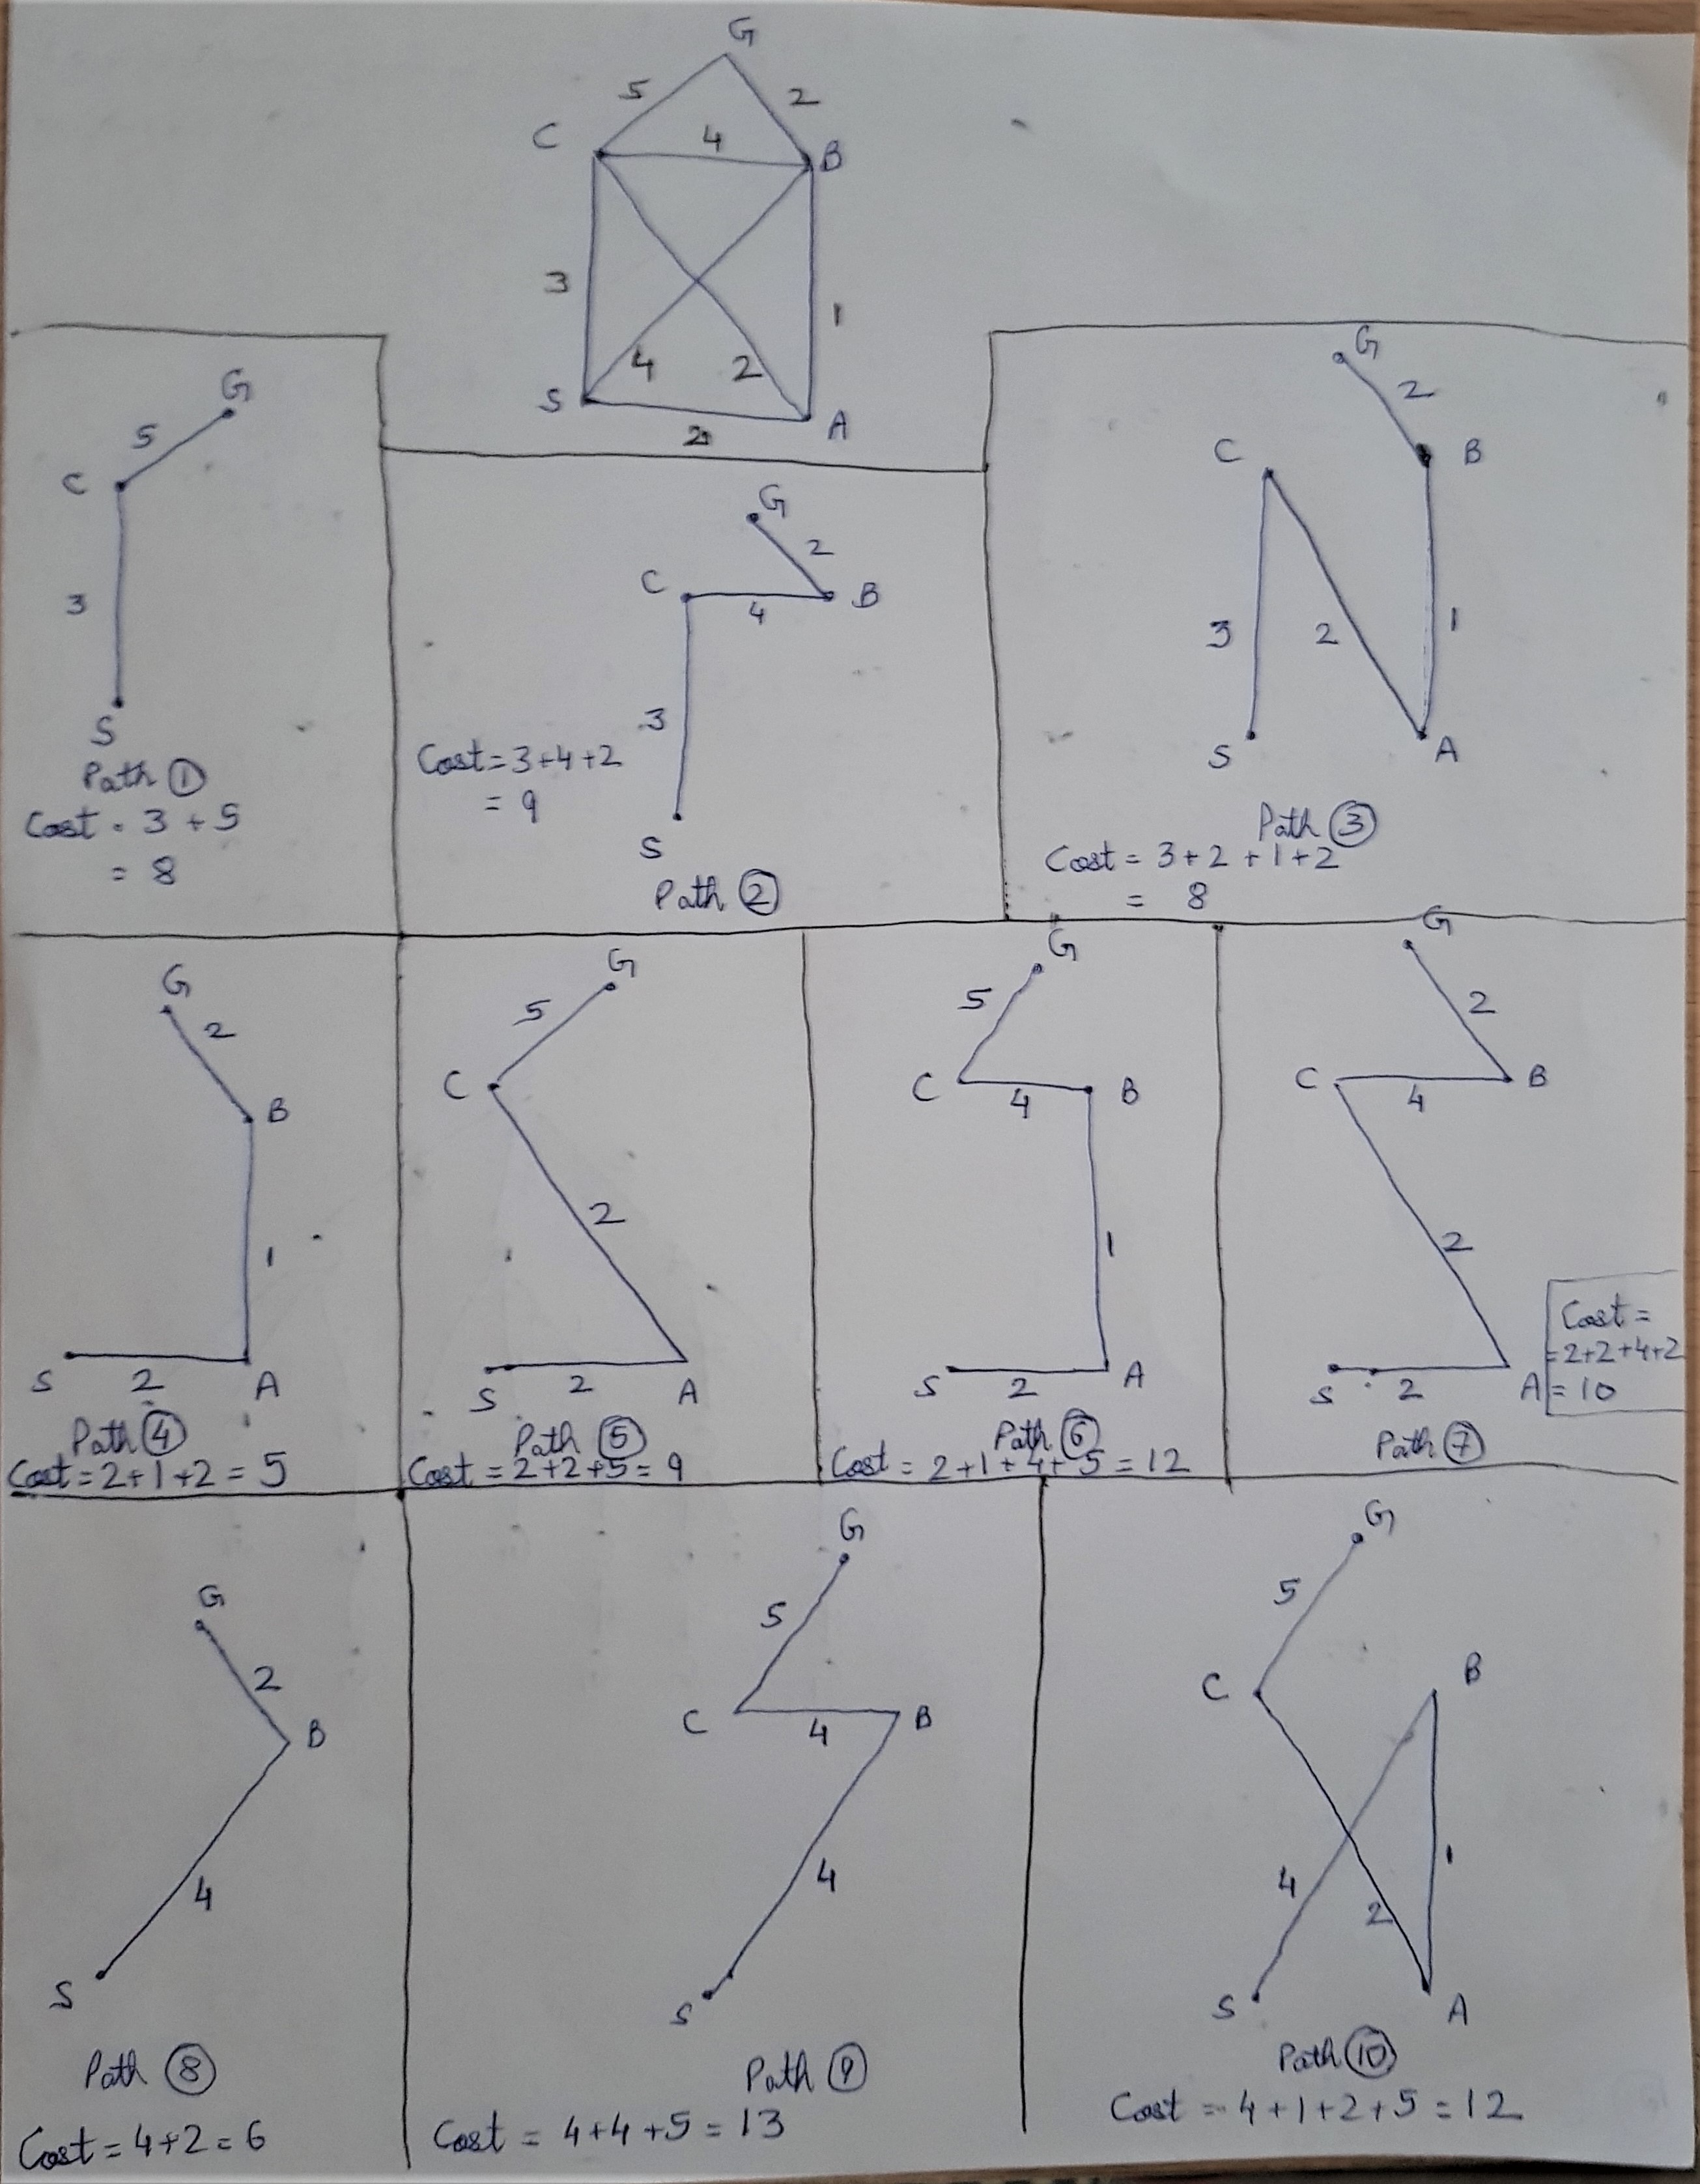 G
5
2
C
4
B
3
1
4
2
S
2
A
G
5
C
3
S
Path ①
Cost = 3 + 5
= 8
G
2
C
B
4
3
Cost = 3+4+2
= 9
S
Path ②
G
2
C
B
3
2
1
S
A
Path ③
Cost = 3+2+1+2
= 8
G
2
B
1
S
2
A
Path ④
Cost = 2+1+2 = 5
G
5
C
2
S
2
A
Path ⑤
Cost = 2+2+5 = 9
G
5
C
4
B
1
S
2
A
Path ⑥
Cost = 2+1+4+5 = 12
G
2
C
4
B
2
S
2
A
Cost =
=2+2+4+2
= 10
Path ⑦
G
2
B
4
S
Path ⑧
Cost = 4+2 = 6
G
5
C
4
B
4
S
Path ⑨
Cost = 4+4+5 = 13
G
5
C
B
4
2
1
S
A
Path ⑩
Cost = 4+1+2+5 = 12